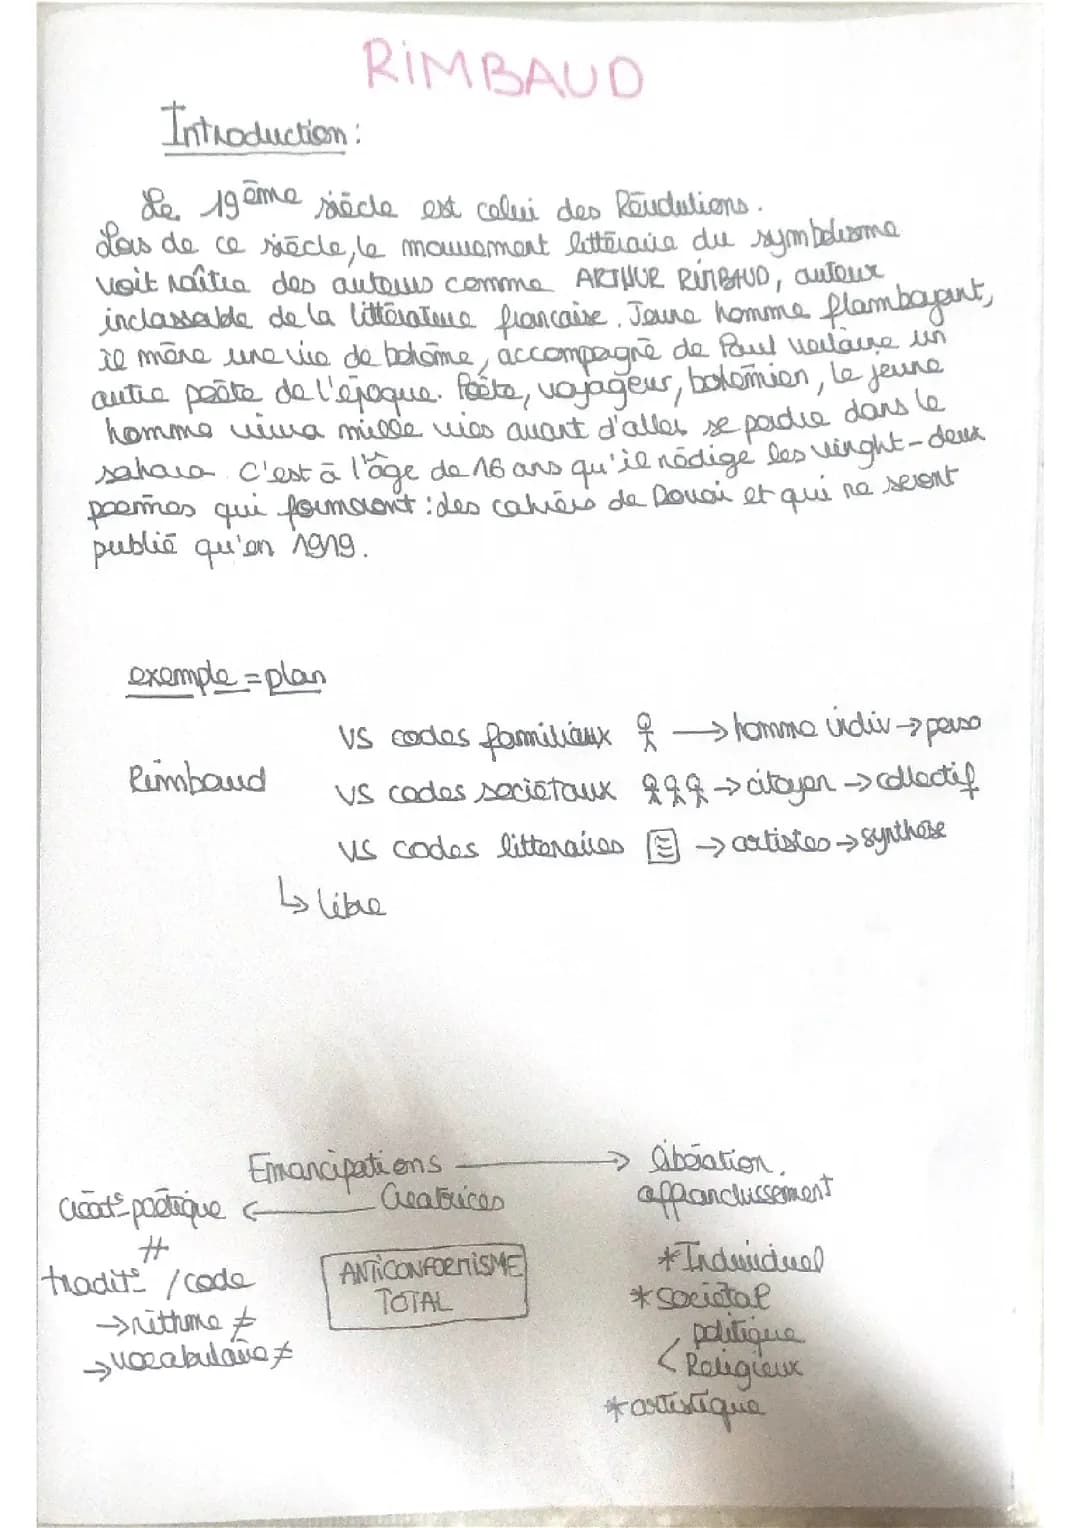 RIMBAUD
Introduction :
Le 19ème siècle est celui des Révolutions.
Lors de ce siècle, le mouvement littéraire du symbolisme
voit naître des auteurs comme ARTHUR RIMBAUD, auteur
inclassable de la littérature française. Jeune homme flamboyant,
il mène une vie de bohème, accompagné de Paul Verlaine un
autre poète de l'époque. Poète, voyageur, bohémien, le jeune
homme vivra mille vies avant d'aller se perdre dans le
sahara. C'est à l'âge de 16 ans qu'il rédige les vinght-deux
poèmes qui formeront : des cahiers de Douai et qui ne seront
publié qu'en 1919.
exemple = plan
VS codes familiaux → homme indiv → perso
Rimbaud
VS codes sociétaux → citoyen → collectif
VS codes litteraires → artistes → synthèse
↳ libre
Emancipations → libération.
affranchissement
créat° poétique ← Creatrices
#
tradit° / code
→ rithme ≠
→ vocabulaire ≠
ANTICONFORMISME
TOTAL
* Individuel
* sociétal
politique
< Religieux
* artistique